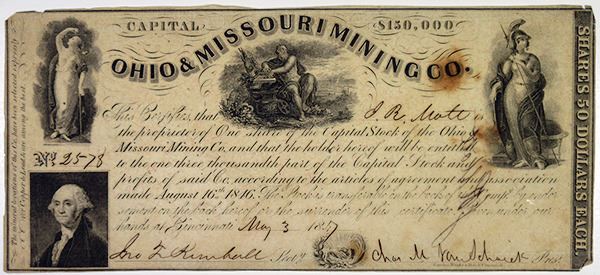 CAPITAL $150,000
OHIO & MISSOURI MINING CO.
This Certifies, that J. R. Mott is
the proprietor of One share of the Capital Stock of the Ohio &
Missouri Mining Co. and that the holder hereof will be entitled
to the one three thousandth part of the Capital Stock and
profits of said Co. according to the articles of agreement and association
made August 16th 1846. The Stock is transferable on the back by
sement on the back hereof or the surrender of this certificate. Given under our
hands at Cincinnati May 3 1847
Jno. F. Kimball Sect'y. Chas M Van Schaick Prest.
No. 2578
SHARES 50 DOLLARS EACH.
The mineral locations of this Co. have been selected
of Copper & Lead & are among the best.